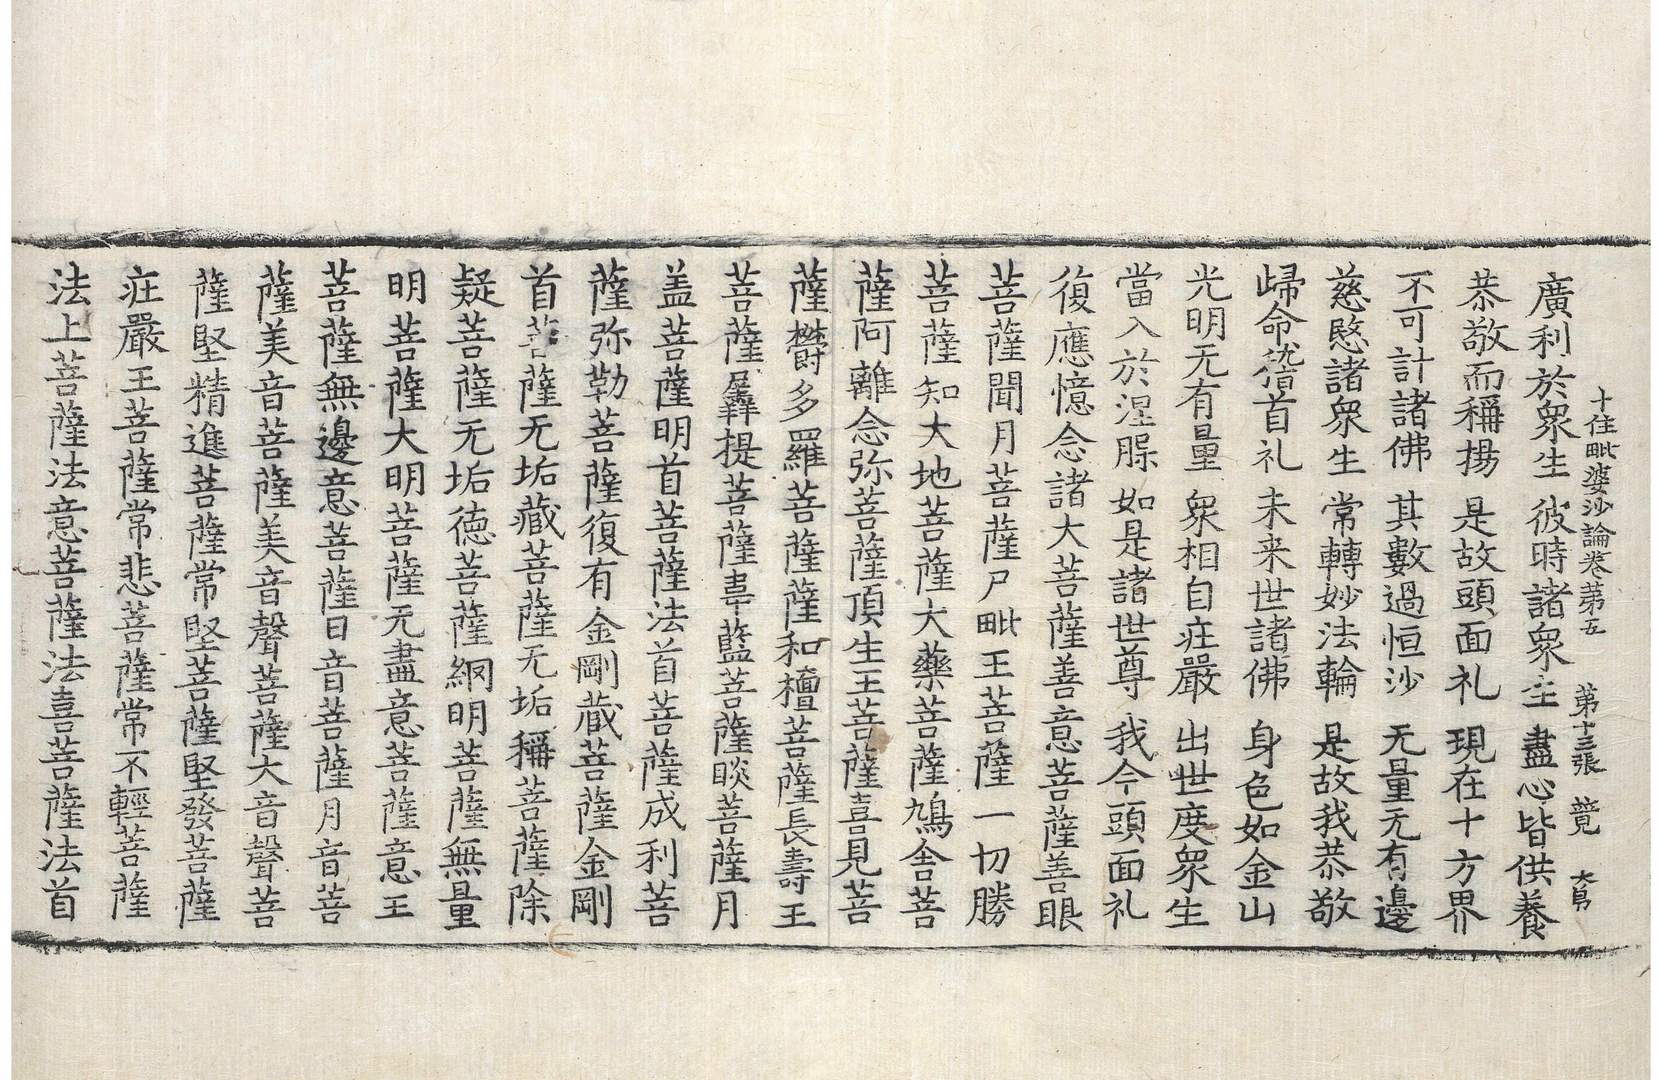 十住毗婆沙論卷第五　第十三張　竟　大員
廣利於衆生　彼時諸衆生　盡心皆供養
恭敬而稱揚　是故頭面礼　現在十方界
不可計諸佛　其數過恒沙　无量无有邊
慈愍諸衆生　常轉妙法輪　是故我恭敬
歸命稽首礼　未来世諸佛　身色如金山
光明无有量　衆相自庄嚴　出世度衆生
當入於涅槃　如是諸世尊　我今頭面礼
復應憶念諸大菩薩善意菩薩善眼
菩薩聞月菩薩尸毗王菩薩一切勝
菩薩知大地菩薩大藥菩薩鳩舍菩
薩阿離念弥菩薩頂生王菩薩喜見菩
薩欝多羅菩薩薩和檀菩薩長壽王
菩薩羼提菩薩韋藍菩薩睒菩薩月
盖菩薩明首菩薩法首菩薩成利菩
薩弥勒菩薩復有金剛藏菩薩金剛
首菩薩无垢藏菩薩无垢稱菩薩除
疑菩薩无垢德菩薩網明菩薩無量
明菩薩大明菩薩无盡意菩薩意王
菩薩無邊意菩薩日音菩薩月音菩
薩美音菩薩美音聲菩薩大音聲菩
薩堅精進菩薩常堅菩薩堅發菩薩
庄嚴王菩薩常悲菩薩常不輕菩薩
法上菩薩法意菩薩法喜菩薩法首